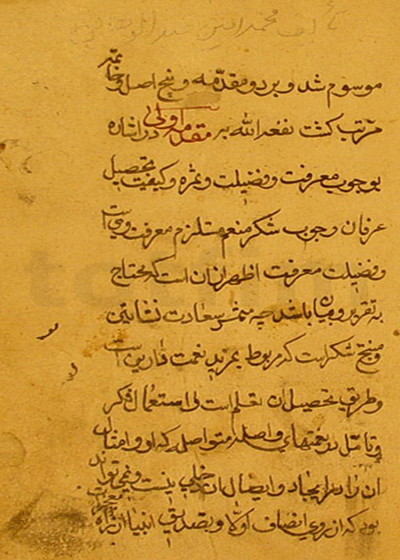 تألیف محمد امین
موسوم شد و بر دو مقدمه و پنج اصل و خاتمه
مرتب گشت نفعه الله به مقدمه اولی در اشاره
بوجوب معرفت و فضیلت و ثمره و کیفیت تحصیل
عرفان وجوب شکر منعم مستلزم معرفت ویست
و فضیلت معرفت اظهر از آن است که محتاج
به تقریر و بیان باشد چه مثمر سعادت نشأتین
و منتج شکرست که مربوط بمزید نعمت دارین است
و طریق تحصیل آن تعلم است و استعمال فکر
و تأمل در نعمتهای واصله متواصله که او و امثال
آن را در ایجاد و ایصال آن دخلی نیست و نمی تواند
بود که از روی انصاف اولا و بتصدیق انبیا